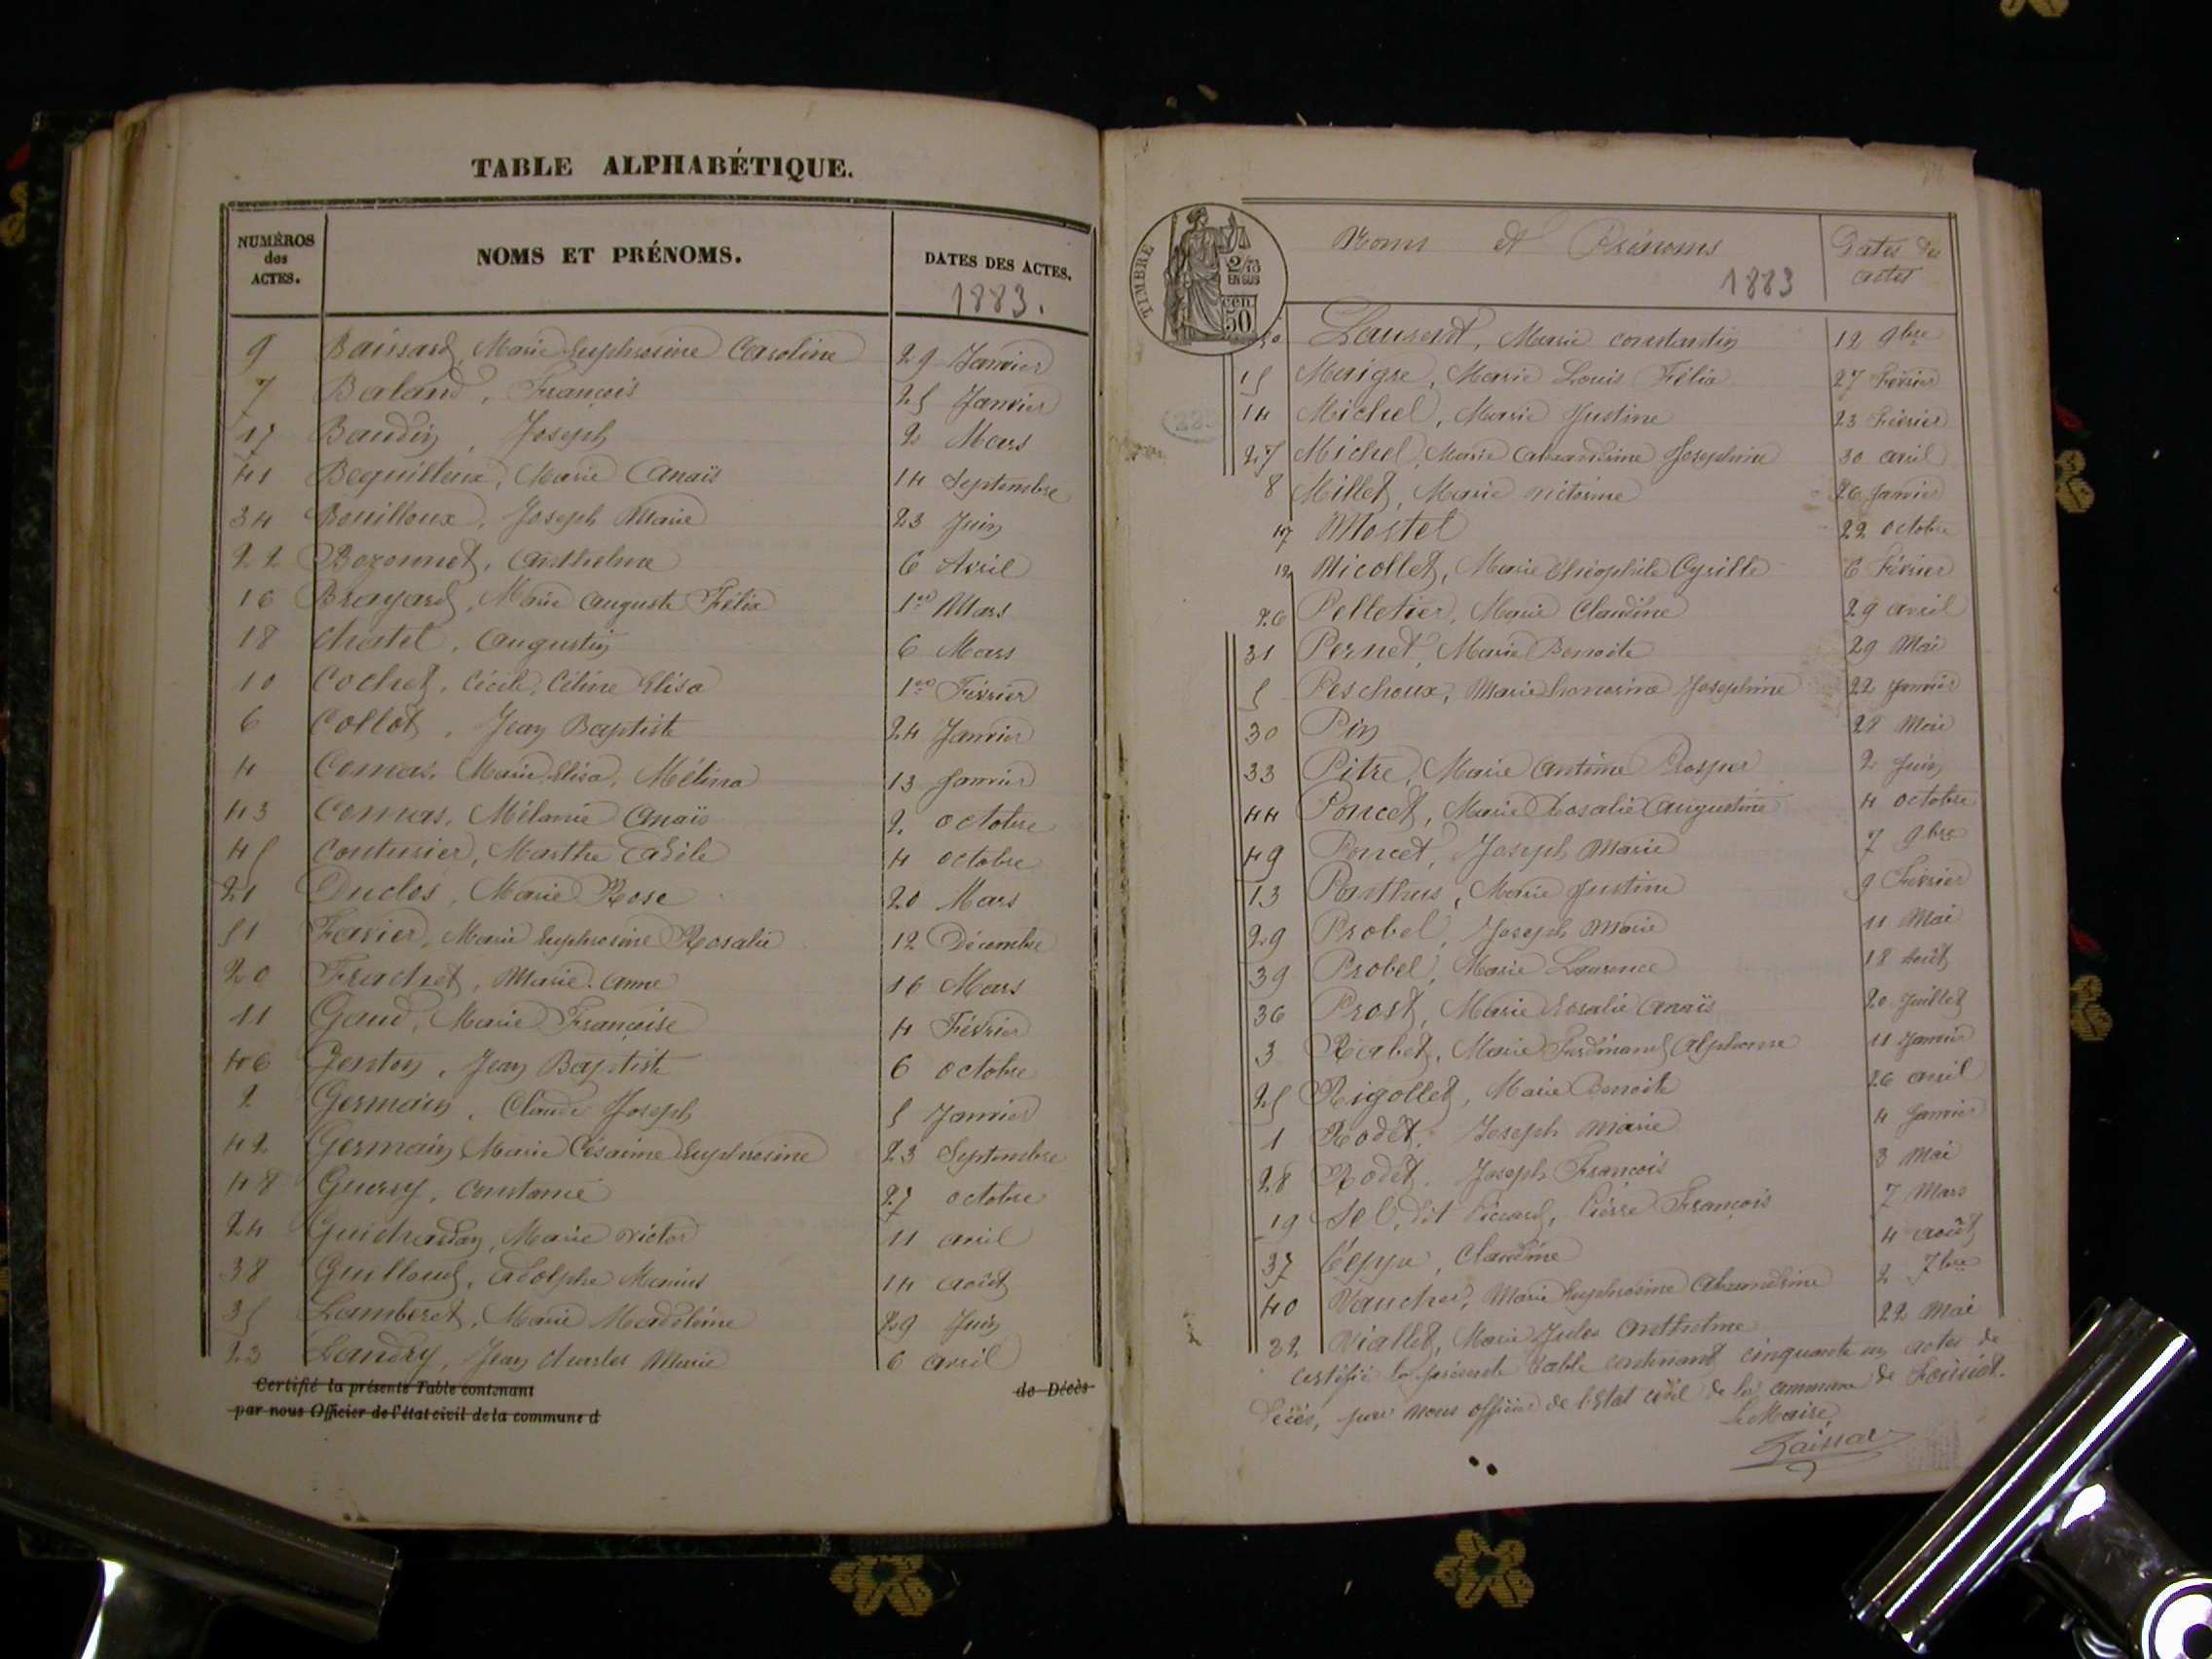 TABLE ALPHABÉTIQUE.
NUMÉROS des ACTES. NOMS ET PRÉNOMS. DATES DES ACTES.
1883.
9 Baissard, Marie Euphrosine Caroline 29 Janvier
7 Baland, François 25 Janvier
17 Baudin, Joseph 2 Mars
41 Bequilleux, Marie Anaïs 14 Septembre
34 Bouilloux, Joseph Marie 23 Juin
22 Bozonnet, Anthelme 6 Avril
16 Brayard, Marie Auguste Félix 1er Mars
18 Chatel, Augustin 6 Mars
10 Cochet, Cécile, Céline Elisa 1er Février
6 Collot, Jean Baptiste 24 Janvier
4 Comas, Marie Elisa, Mélina 13 Janvier
43 Comas, Mélanie Anaïs 2 octobre
45 Couturier, Marthe Adèle 4 octobre
21 Duclos, Marie Rose 20 Mars
51 Favier, Marie Euphrosine Rosalie 12 Décembre
20 Frachet, Marie Anne 16 Mars
11 Gaud, Marie Françoise 4 Février
46 Genton, Jean Baptiste 6 octobre
2 Germain, Claude Joseph 5 Janvier
42 Germain, Marie Césarine Euphrosine 23 Septembre
48 Guerry, Constance 27 octobre
24 Guichardan, Marie Victor 11 avril
38 Guilloud, Adolphe Marius 14 août
35 Lamberet, Marie Madeleine 29 Juin
23 Landry, Jean Charles Marie 6 avril
Certifié la présente Table contenant de Décès
par nous Officier de l'état civil de la commune d
TIMBRE
2/10 EN SUS
50 cen.
Noms et Prénoms Dates des actes
1883
50 Laurent, Marie constantin 12 9bre
15 Maigre, Marie Louis Félix 27 Février
14 Michel, Marie Justine 23 Février
27 Michel, Marie Alexandrine Josephine 30 avril
8 Millet, Marie victorine 26 Janvier
Mostel 22 octobre
12 Nicollet, Marie Théophile Cyrille 6 Février
26 Pelletier, Marie Claudine 29 avril
31 Pernet, Marie Benoite 29 Mai
5 Peschoux, Marie honorine Josephine 22 Janvier
30 Pin 28 Mai
33 Pitre, Marie Antime Prosper 2 Juin
44 Poncet, Marie Rosalie Augustine 4 octobre
49 Poncet, Joseph Marie 7 9bre
13 Ponthus, Marie Justine 9 Février
29 Probel, Joseph Marie 11 Mai
39 Probel, Marie Laurence 18 Août
36 Prost, Marie Rosalie Anaïs 20 Juillet
3 Rabet, Marie Ferdinand Alphonse 11 Janvier
25 Rigollet, Marie Benoite 26 avril
1 Rodet, Joseph Marie 4 Janvier
28 Rodet, Joseph François 3 Mai
19 Sel, dit Picard, Pierre François 7 Mars
37 Claudine 4 août
40 Vaucher, Marie Euphrosine Alexandrine 2 7bre
32 Viallet, Marie Jules Anthelme 22 Mai
Certifié la présente table contenant cinquante un actes de
Décès, par nous officier de l'Etat civil de la commune de
Le Maire,
Baissard